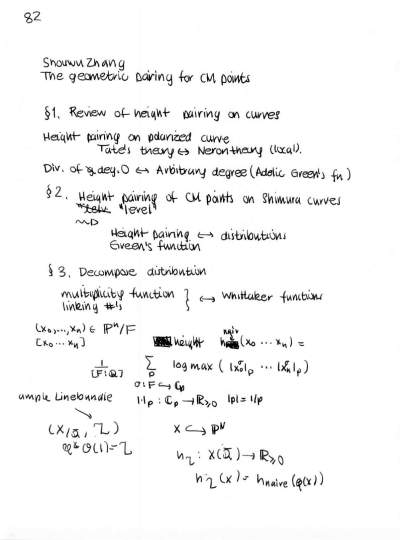 82
Shouwu Zhang
The geometric pairing for CM points
§1. Review of height pairing on curves
Height pairing on polarized curve
Tate's theory ↔ Neron theory (local).
Div. of deg. 0 ↔ Arbitrary degree (Adelic Green's fn)
§2. Height pairing of CM points on Shimura curves
"level"
Height pairing ↔ distributions
Green's function
§3. Decompose distribution
multiplicity function } ↔ Whittaker functions
linking #'s
(x₀,...,xₙ) ∈ ℙⁿ/F height h^naiv (x₀ ... xₙ) =
[x₀ ... xₙ]
1/[F:ℚ] ∑_p log max (|x₀^σ|_p ... |xₙ^σ|_p)
σ: F ↪ ℂ_p
|·|_p : ℂ_p → ℝ≥0 |p| = 1/p
ample Linebundle
(X/ℚ̄, L) X ↪ ℙᴺ
φ* O(1) = L h_L : X(ℚ̄) → ℝ≥0
h_L(x) = h_naive(φ(x))